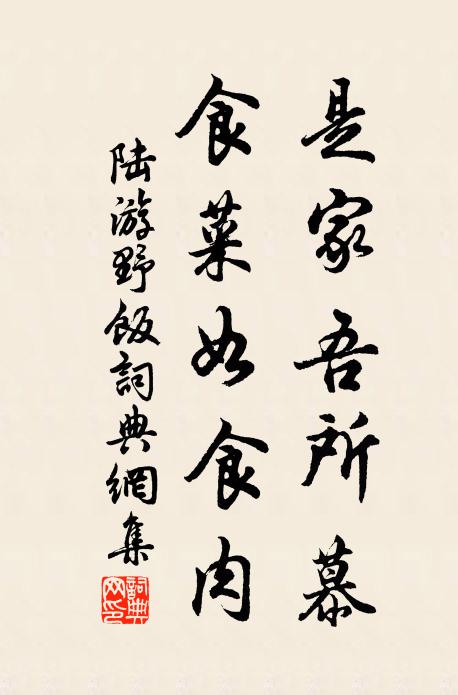 是家吾所慕
食菜如食肉
陆游野飯詞典網集
詞典网印